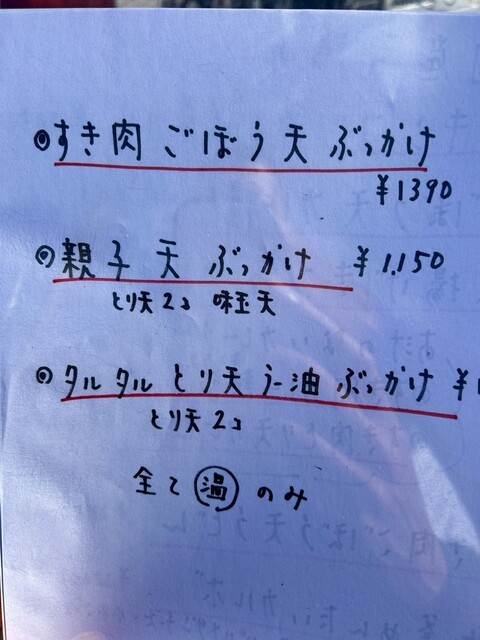 ◎すき肉 ごぼう天 ぶっかけ
¥1390
◎親子天 ぶっかけ ¥1,150
とり天2コ 味玉天
◎タルタルとり天ラー油ぶっかけ ¥1
とり天2コ
全て温のみ